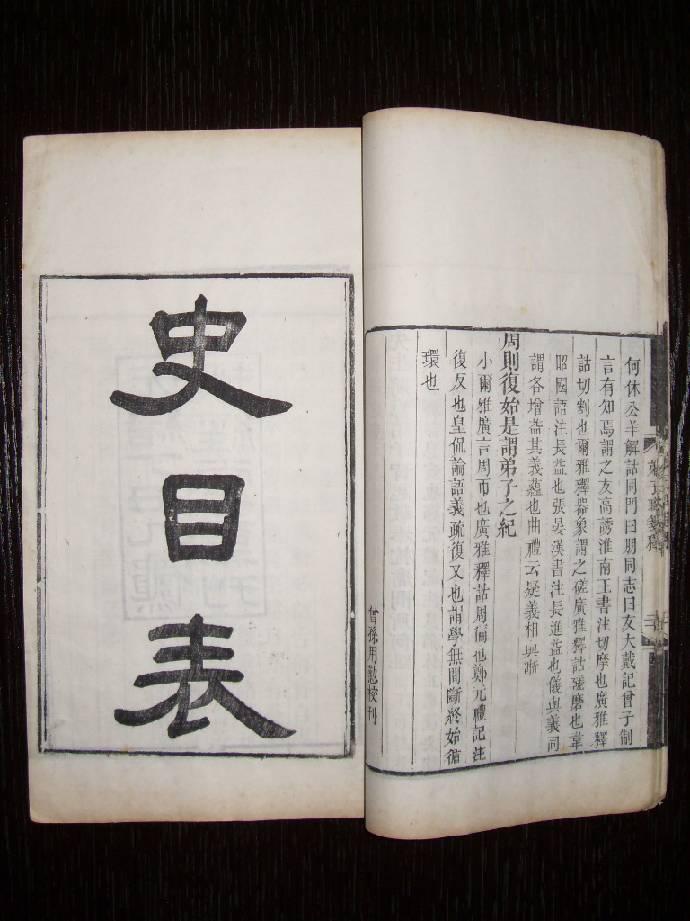 何休公羊解詁同門曰朋同志曰友大戴記曾子制
言有知焉謂之友高誘淮南王書注切摩也廣雅釋
詁切割也爾雅釋器象謂之磋廣雅釋詁磋磨也韋
昭國語注長益也張晏漢書注長進益也儀與義同
謂各增益其義蘊也曲禮云疑義相與析
周則復始是謂弟子之紀
小爾雅廣言周帀也廣雅釋詁周徧也鄭元禮記注
復反也皇侃論語義疏復又也謂學無間斷終始循
環也
曾孫用懃校刊
史目表